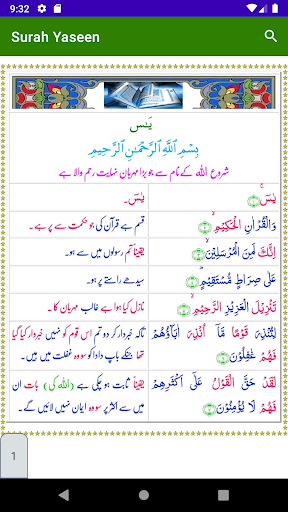 9:32
Surah Yaseen
یٰسٓ
بِسْمِ اللّٰهِ الرَّحْمٰنِ الرَّحِيْمِ
شروع اللہ کے نام سے جو بڑا مہربان نہایت رحم والا ہے
يٰسٓ ۚ ﴿١﴾
یٰسٓ۔
وَالْقُرْاٰنِ الْحَكِيْمِ ۙ ﴿٢﴾
قسم ہے قرآن کی جو حکمت سے پر ہے۔
اِنَّكَ لَمِنَ الْمُرْسَلِيْنَ ۙ ﴿٣﴾
یقیناً تم رسولوں میں سے ہو۔
عَلٰى صِرَاطٍ مُّسْتَقِيْمٍ ؕ ﴿٤﴾
سیدھے راستے پر ہو۔
تَنْزِيْلَ الْعَزِيْزِ الرَّحِيْمِ ۙ ﴿٥﴾
نازل کیا ہوا ہے غالب مہربان کا۔
لِتُنْذِرَ قَوْمًا مَّاۤ اُنْذِرَ اٰبَآؤُهُمْ
فَهُمْ غٰفِلُوْنَ ﴿٦﴾
تاکہ خبردار کر دو تم اس قوم کو نہیں خبردار کیا گیا
تھا جنکے باپ دادا کو سو وہ غفلت میں ہیں۔
لَقَدْ حَقَّ الْقَوْلُ عَلٰۤى اَكْثَرِهِمْ
فَهُمْ لَا يُؤْمِنُوْنَ ﴿٧﴾
یقیناً ثابت ہو چکی ہے (اللہ کی) بات ان
میں سے اکثر پر سو وہ ایمان نہیں لائیں گے۔
1